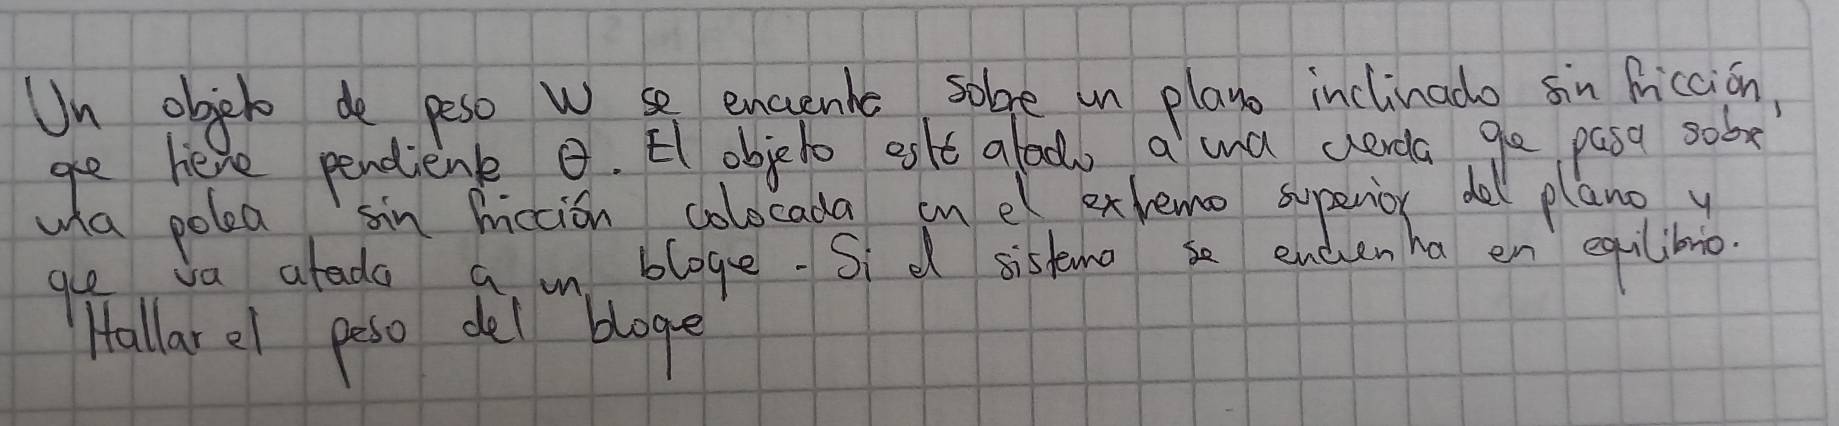 Un objeto de peso W se encuentra sobre un plano inclinado sin fricción,
que tiene pendiente θ. El objeto está atado a una cuerda que pasa sobre
una polea sin fricción colocada en el extremo superior del plano y
que va atada a un bloque. Si el sistema se encuentra en equilibrio.
Hallar el peso del bloque